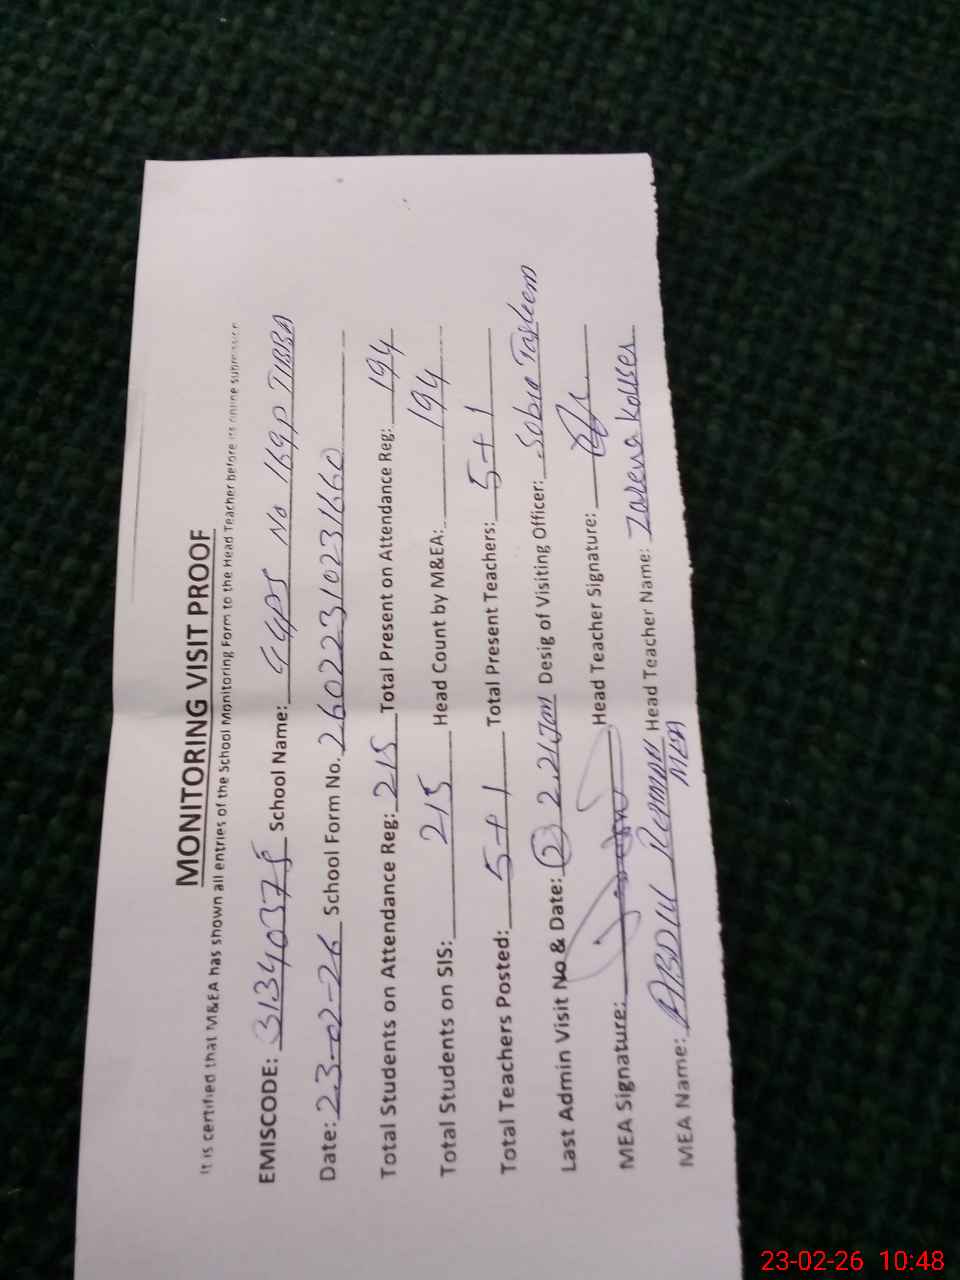 MONITORING VISIT PROOF
It is certified that M&EA has shown all entries of the School Monitoring Form to the Head Teacher before its online submission
EMISCODE: 31340375 School Name: GGPS No 169P TIBBA
Date: 23-02-26 School Form No. 260223102331660
Total Students on Attendance Reg: 215 Total Present on Attendance Reg: 194
Total Students on SIS: 215 Head Count by M&EA: 194
Total Teachers Posted: 5+1 Total Present Teachers: 5+1
Last Admin Visit No & Date: (2) 2.21 Jan Desig of Visiting Officer: Sobia Tasleem
MEA Signature: Head Teacher Signature:
MEA Name: ABDUL REHMAN MEA Head Teacher Name: Zareena Kouser
23-02-26 10:48